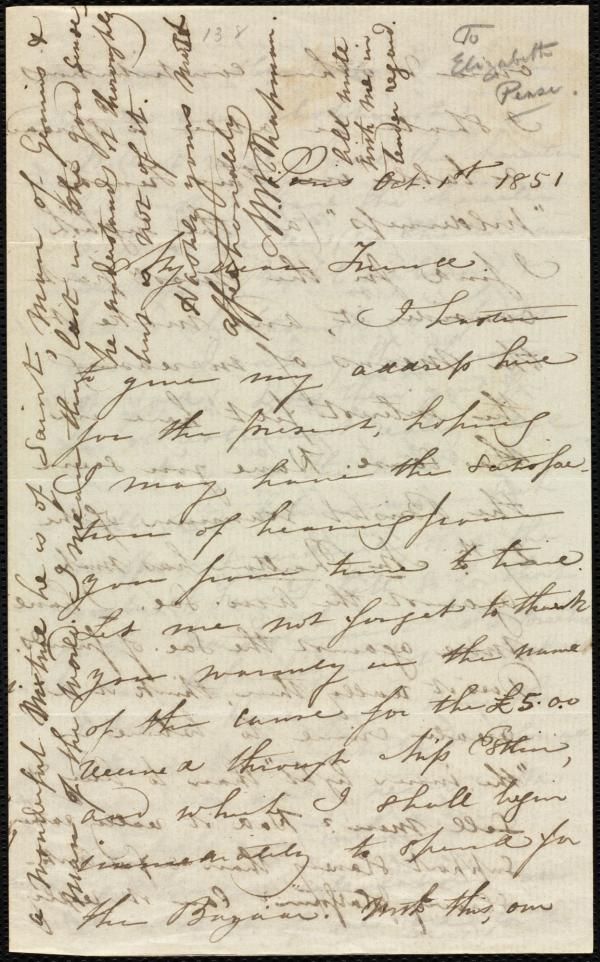 138
To
Elizabeth
Pease.
Paris Oct. 1st 1851
My Dear Friend.
I hasten
to give my address here
for the present, hoping
I may have the satisfac-
tion of hearing from
you from time to time.
Let me not forget to thank
you warmly in the name
of the cause for the £5.0.0
received through Miss Estlin,
and which I shall begin
immediately to spend for
the Bazaar. With this, our
a wonderful mixture he is of Saint, Man of Genius &
Man of the World. I mean this last in the good sense
he understands it thoroughly
but is not of it.
Hastily yours most
affectionately
M. W. Chapman.
All unite
with me in
tender regard.